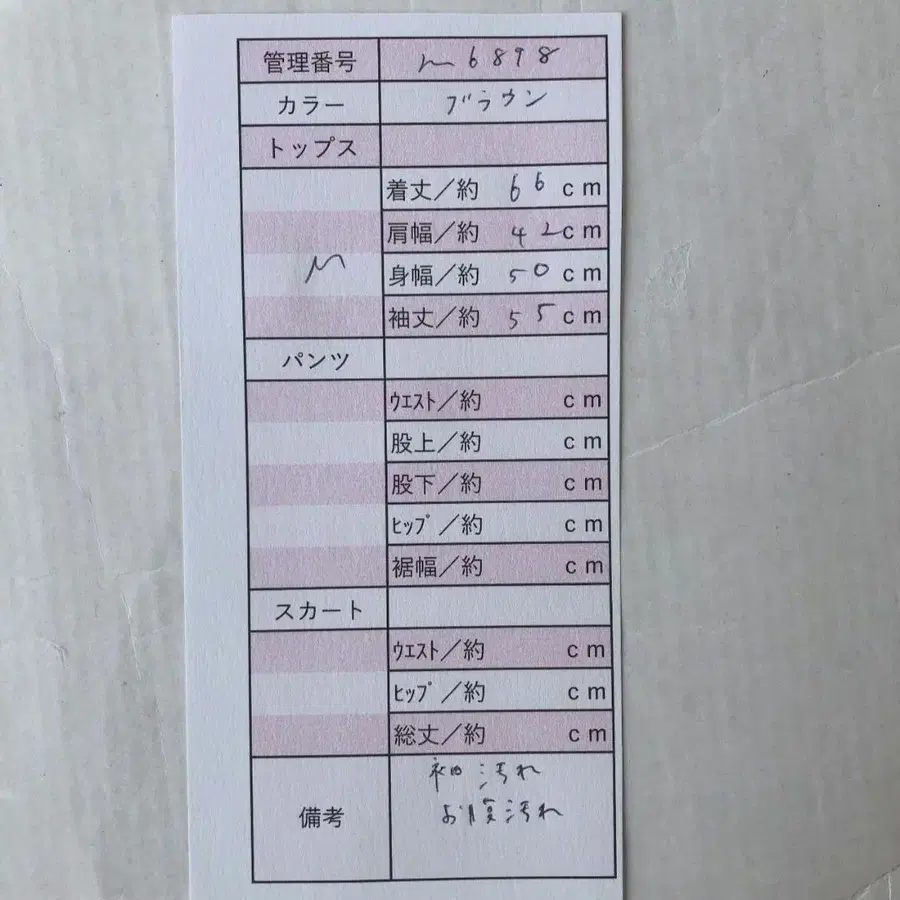 管理番号 m6898
カラー ブラウン
トップス
着丈／約 66 cm
肩幅／約 42cm
M
身幅／約 50cm
袖丈／約 55cm
パンツ
ｳｴｽﾄ／約 cm
股上／約 cm
股下／約 cm
ﾋｯﾌﾟ／約 cm
裾幅／約 cm
スカート
ｳｴｽﾄ／約 cm
ﾋｯﾌﾟ／約 cm
総丈／約 cm
備考
袖汚れ
お腹汚れ